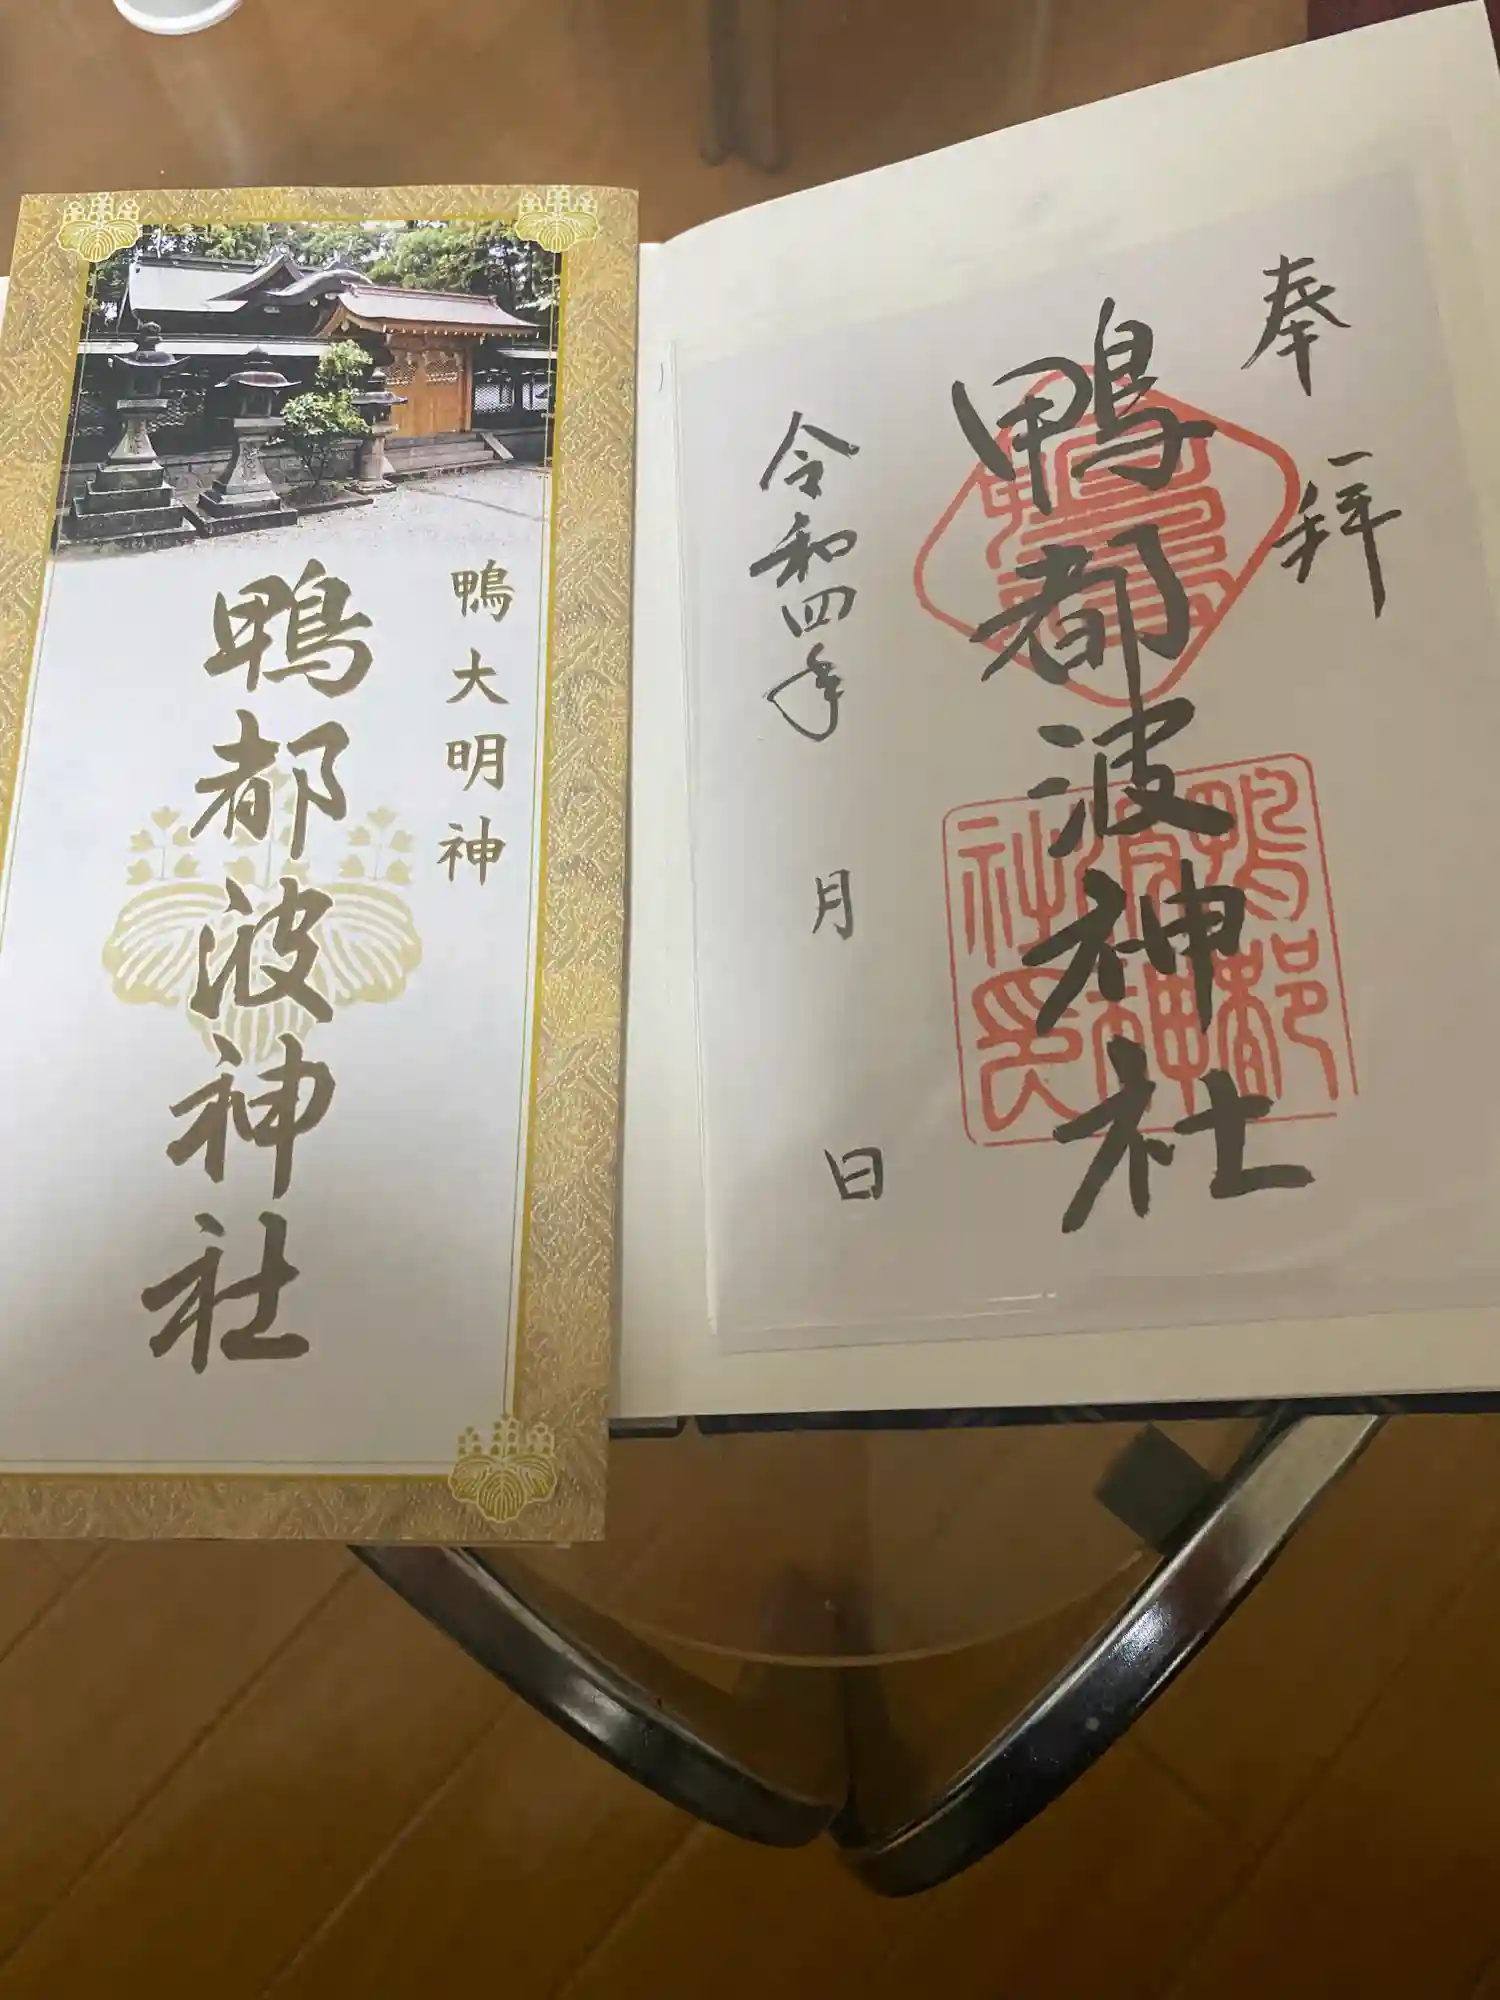 鴨大明神
鴨都波神社
奉拝
鴨都波神社
令和四年 月 日
鴨都波神社印